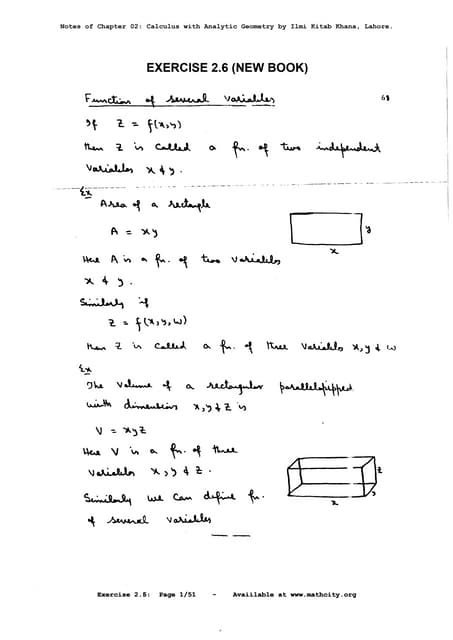 Notes of Chapter 02: Calculus with Analytic Geometry by Ilmi Kitab Khana, Lahore.
EXERCISE 2.6 (NEW BOOK)
Function of several variables 68
If Z = f(x,y)
then Z is called a fn. of two independent
variables x & y.
Ex
Area of a rectangle
A = xy
y
x
Here A is a fn. of two variables
x & y.
Similarly if
Z = f(x,y,w)
then Z is called a fn. of three variables x,y & w
Ex
The volume of a rectangular parallelopipped
with dimentions x,y & z is
V = xyz
Here V is a fn. of three
variables x,y & z.
z
y
x
Similarly we can define fn.
of several variables
Exercise 2.5: Page 1/51 - Available at www.mathcity.org